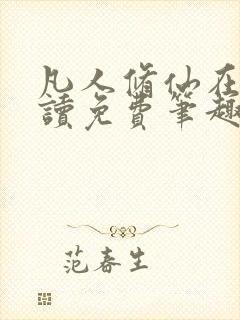 凡人脩仙在
讀免費筆趣
范春生